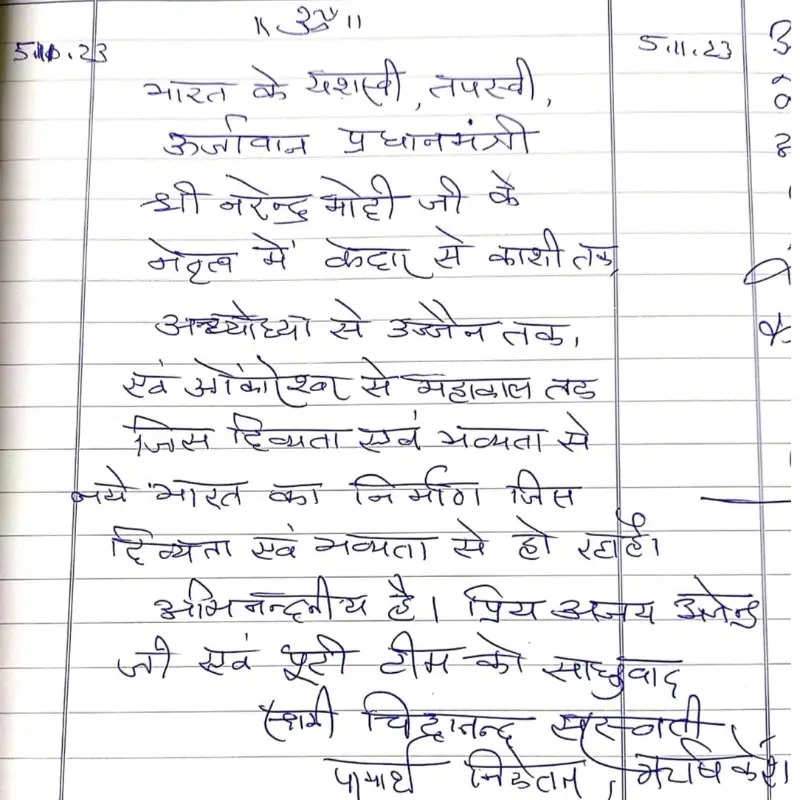 ॥ ॐ ॥
5.11.23 5.11.23
भारत के यशस्वी, तपस्वी,
ऊर्जावान प्रधानमंत्री
श्री नरेन्द्र मोदी जी के
नेतृत्व में केदार से काशी तक,
अयोध्या से उज्जैन तक,
एवं ओंकारेश्वर से महाकाल तक
जिस दिव्यता एवं भव्यता से
नये भारत का निर्माण जिस
दिव्यता एवं भव्यता से हो रहा है।
अभिनन्दनीय है। प्रिय अजय अजेन्द्र
जी एवं पूरी टीम को साधुवाद
स्वामी चिदानन्द सरस्वती,
परमार्थ निकेतन, ऋषिकेश